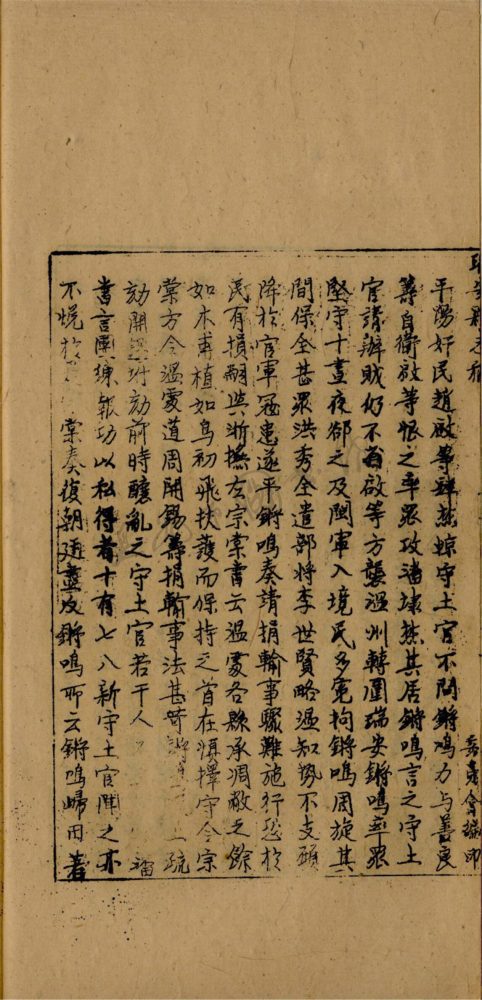 平陽奸民趙啟等肆惎掠守土官不問鏘鳴力與善良
籌自衛啟等恨之率眾攻潘埭焚其居鏘鳴言之守土
官請辦賊仍不省啟等方襲溫州轉圍瑞安鏘鳴率眾
堅守十晝夜卻之及閩軍入境民多冤拘鏘鳴周旋其
間保全甚眾洪秀全遣部將李世賢略溫知勢不支頭
降於官軍寇患遂平鏘鳴奏請捐輸事驟難施行恐於
民有損嗣與浙撫左宗棠書云溫處各縣承凋敝之餘
如木再植如鳥初飛扶護而保持之首在慎擇守令宗
棠方令溫處道周開錫籌捐輸事法甚苛鏘 上疏
劾開錫 劾前時釀亂之守土官若干人
嘗言團練報功以私得者十有七八新守土官聞之亦
不悅於 棠奏復朝廷 鏘鳴所云鏘鳴歸田著